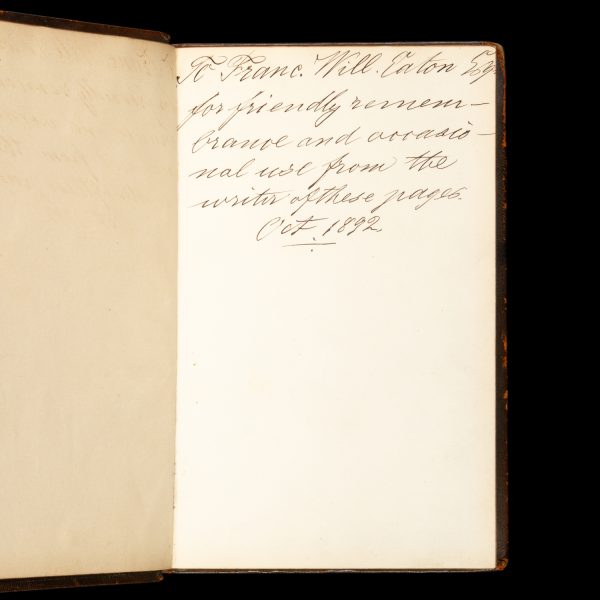 To Franc. Will. Eaton Esq.
for friendly remem-
brance and occasio-
nal use from the
writer of these pages.
Oct. 1892.